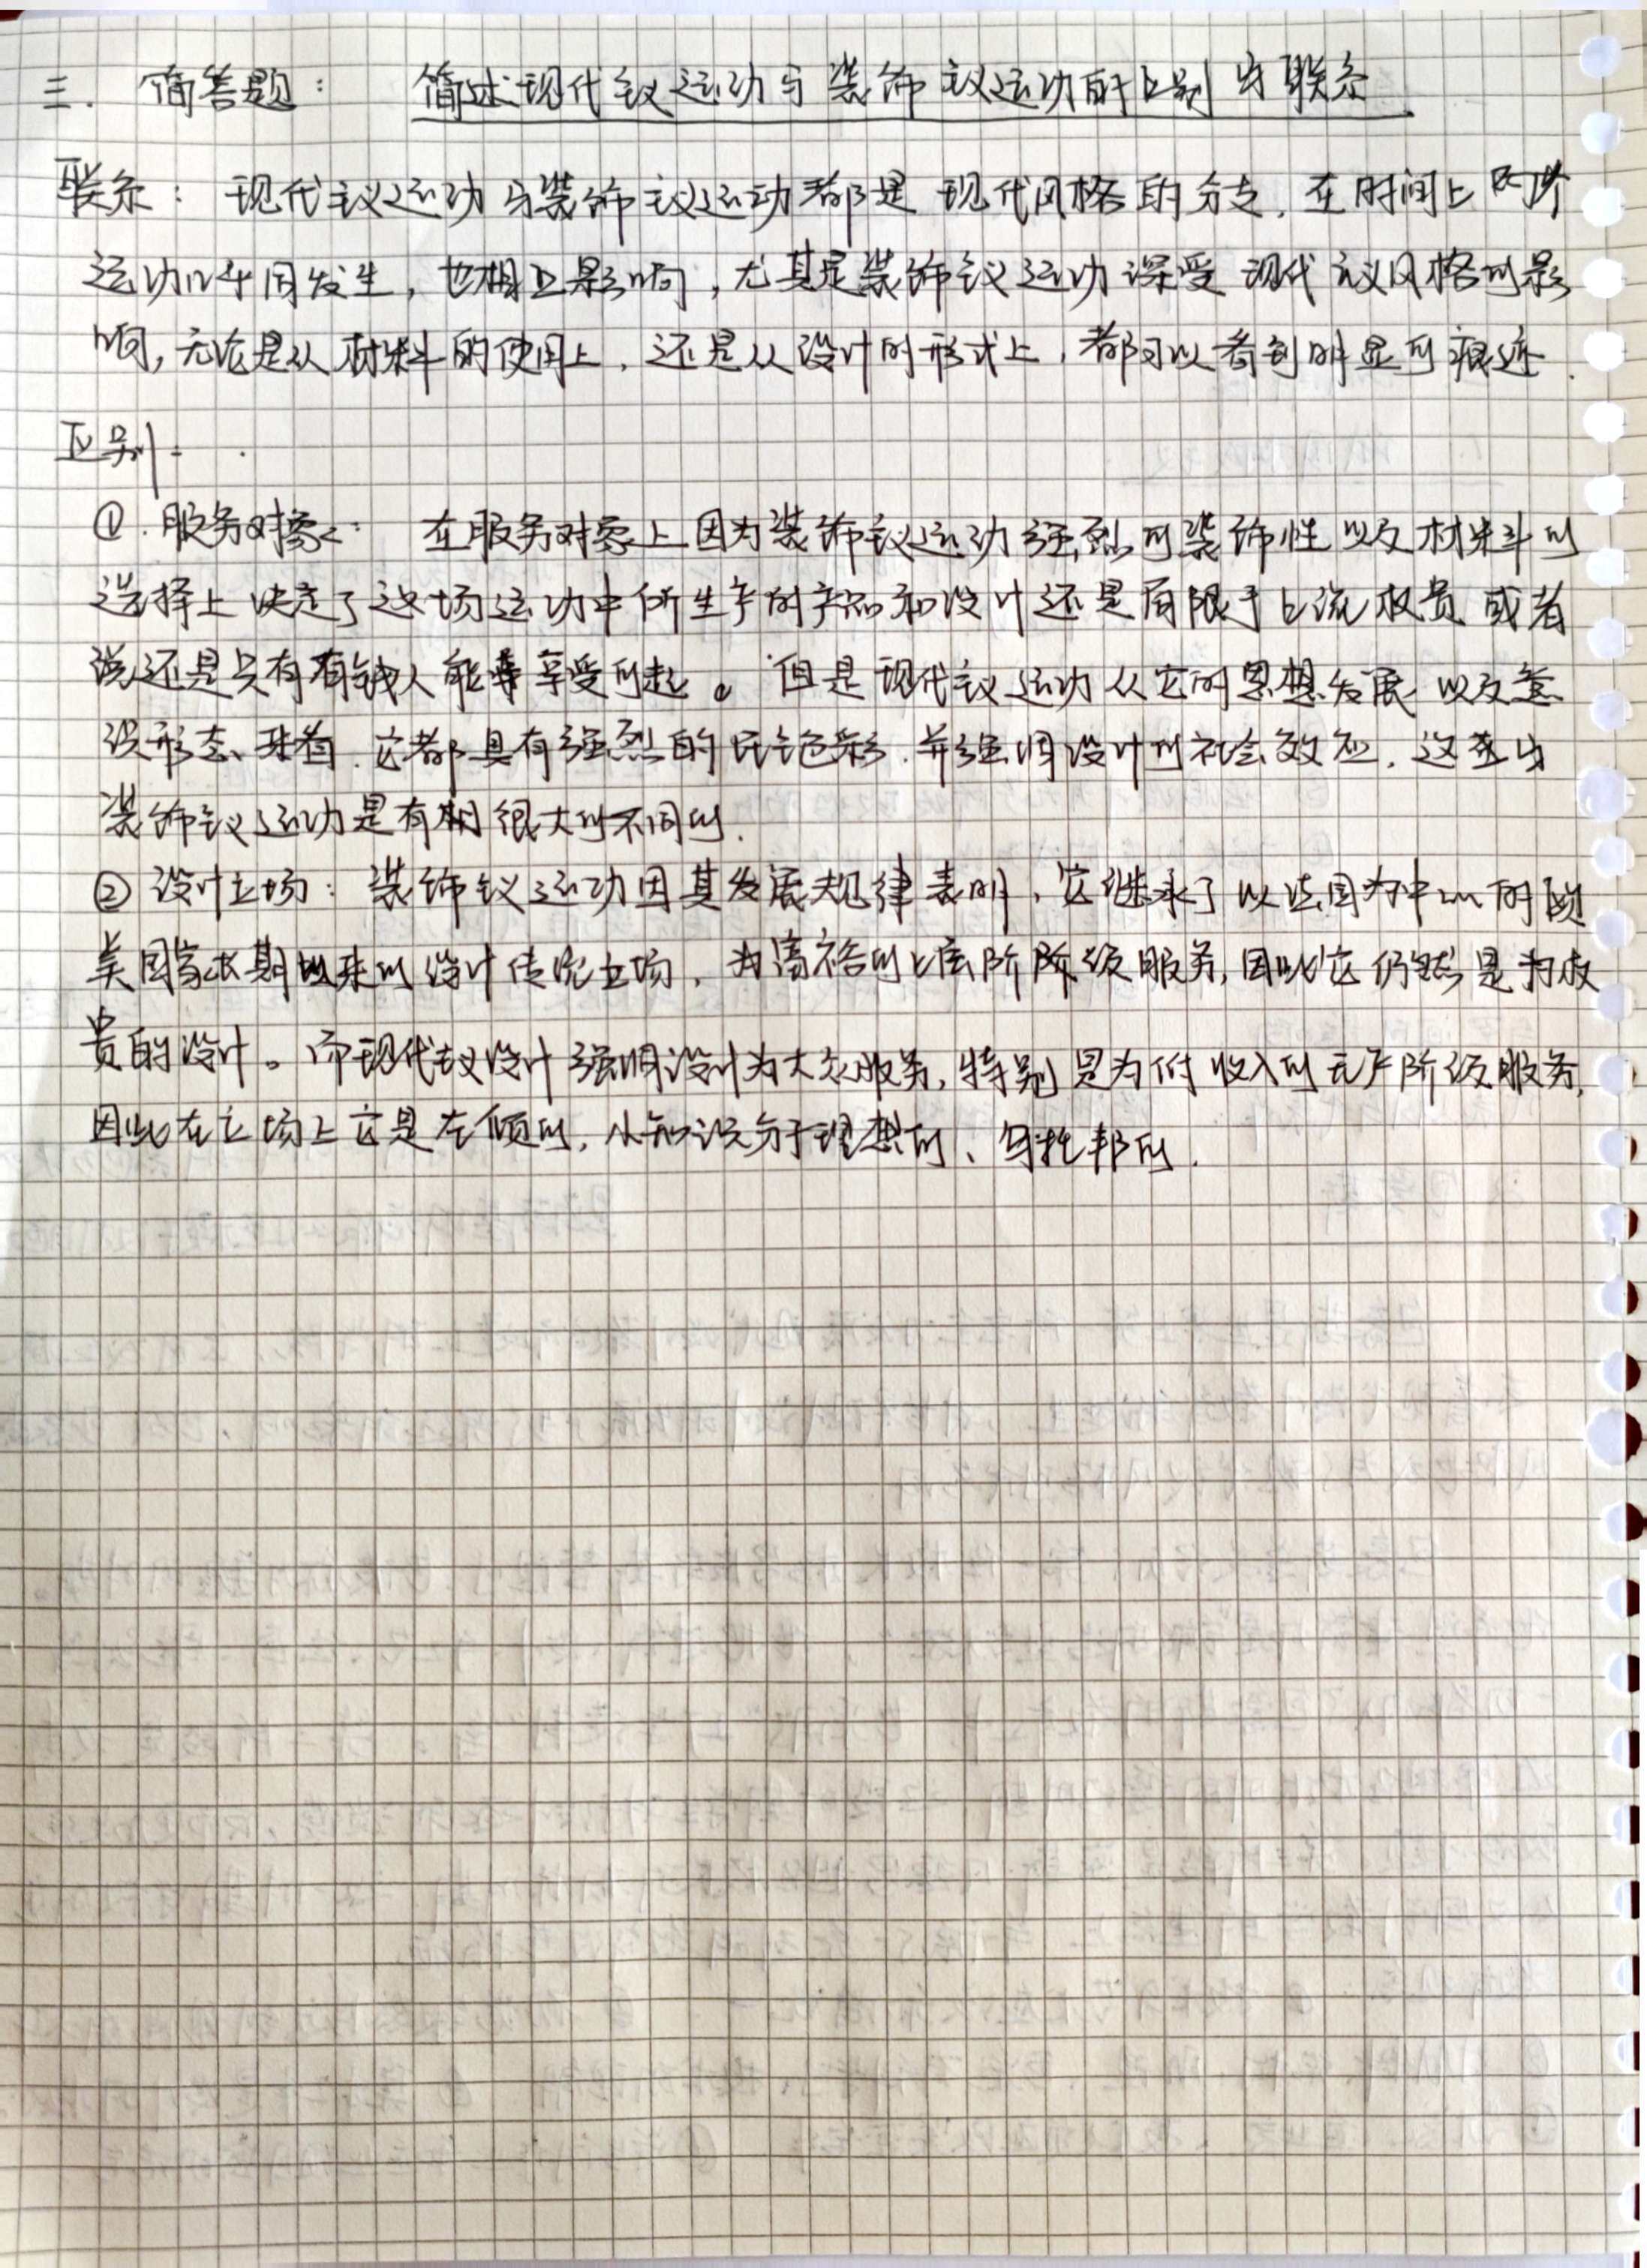 三. 简答题： 简述现代主义运动与装饰主义运动的区别与联系
联系：现代主义运动与装饰主义运动都是现代风格的分支，在时间上两个
运动几乎同发生，也相互影响，尤其是装饰主义运动深受现代主义风格的影
响，无论是从材料的使用上，还是从设计的形式上，都可以看到明显的痕迹.
区别：
① 服务对象： 在服务对象上因为装饰主义运动强烈的装饰性以及材料的
选择上决定了这场运动中所生产的产品和设计还是局限于上流权贵或者
说还是只有有钱人能享受的起。但是现代主义运动从它的思想发展以及意
识形态来看.它都具有强烈的民主色彩.并强调设计的社会效应，这些与
装饰主义运动是有很大的不同的.
② 设计立场：装饰主义运动因其发展规律表明，它继承了以法国为中心的欧
美国家长期以来的设计传统立场，为富裕的上层阶级服务,因此它仍然是为权
贵的设计。而现代主义设计强调设计为大众服务，特别是为低收入的无产阶级服务,
因此在立场上它是左倾的，小知识分子理想的、乌托邦的.